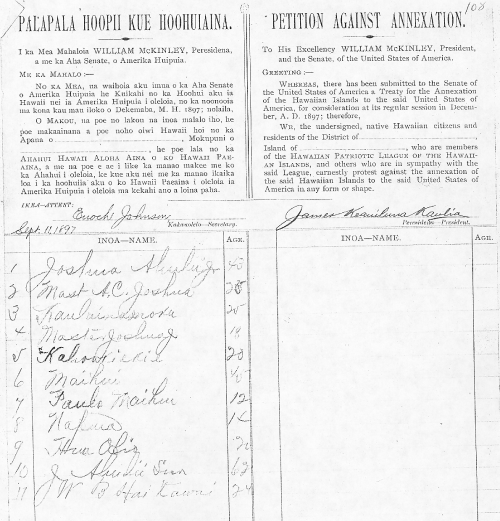 108
PALAPALA HOOPII KUE HOOHUIAINA.
I ka Mea Mahaloia WILLIAM McKINLEY, Peresidena,
a me ka Aha Senate, o Amerika Huipuia.
ME KA MAHALO:—
NO KA MEA, ua waihoia aku imua o ka Aha Senate
o Amerika Huipuia he Kuikahi no ka Hoohui aku ia
Hawaii nei ia Amerika Huipuia i oleloia, no ka noonooia
ma kona kau mau iloko o Dekemaba, M. H. 1897; nolaila,
O MAKOU, na poe no lakou na inoa malalo iho, he
poe makaainana a poe noho oiwi Hawaii hoi no ka
Apana o , Mokupuni o
, he poe lala no ka
AHAHUI HAWAII ALOHA AINA O KO HAWAII PAE-
AINA, a me na poe e ae i like ka manao makee me ko
ka Ahahui i oleloia, ke kue aku nei me ka manao ikaika
loa i ka hoohuiia aku o ko Hawaii Paeaina i oleloia ia
Amerika Huipuia i oleloia ma kekahi ano a loina paha.
IKEA—ATTEST:
Enoch Johnson
Sept. 11, 1897
Kakauolelo—Secretary.
PETITION AGAINST ANNEXATION.
To His Excellency WILLIAM McKINLEY, President,
and the Senate, of the United States of America.
GREETING:—
WHEREAS, there has been submitted to the Senate of
the United States of America a Treaty for the Annexation
of the Hawaiian Islands to the said United States of
America, for consideration at its regular session in Decem-
ber, A. D. 1897; therefore,
WE, the undersigned, native Hawaiian citizens and
residents of the District of
Island of , who are members
of the HAWAIIAN PATRIOTIC LEAGUE OF THE HAWAII-
AN ISLANDS, and others who are in sympathy with the
said League, earnestly protest against the annexation of
the said Hawaiian Islands to the said United States of
America in any form or shape.
James Keauiluna Kaulia
Peresidena—President.
INOA—NAME. AGE. INOA—NAME. AGE.
1 Joshua Jr
2 Mast A. C. Joshua
3
4 Joshua
5
6 Maihui
7 Paulo Maihui 12
8
9 Hua
10 J. 62
11 J W B